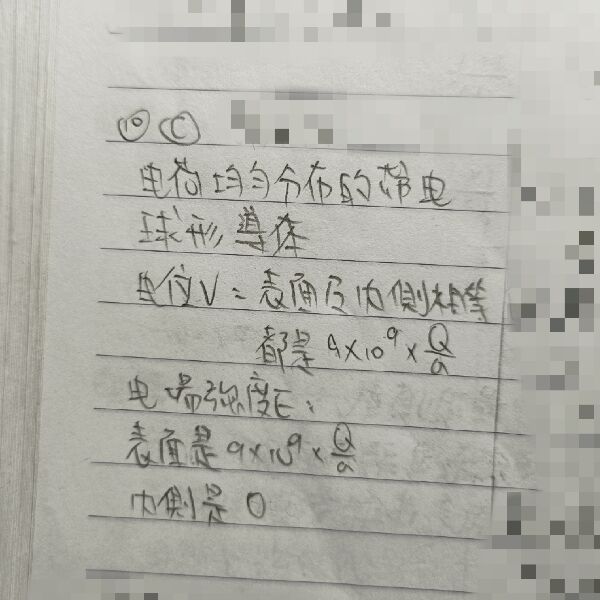 ⑩ Ⓒ
电荷均匀分布的帶电
球形導体
电位V=表面及内側相等
都是 9×10⁹×Q/a
电場強度E:
表面是 9×10⁹×Q/a
内側是 0